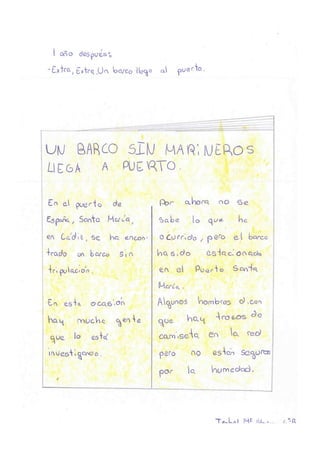 1 año después:
-Extra, Extra, Un barco llega al puerto.
UN BARCO SIN MARiNEROS
LLEGA A PUERTO.
En el puerto de
España, Santa María,
en Cádiz, se ha encon-
trado un barco sin
tripulación.
En esta ocasión
hay mucha gente
que lo está
investigando.
Por ahora no se
sabe lo que ha
ocurrido, pero el barco
ha sido estacionado
en el Puerto Santa
María.
Algunos hombres dicen
que hay trozos de
camiseta en la red
pero no están seguros
por la humedad.